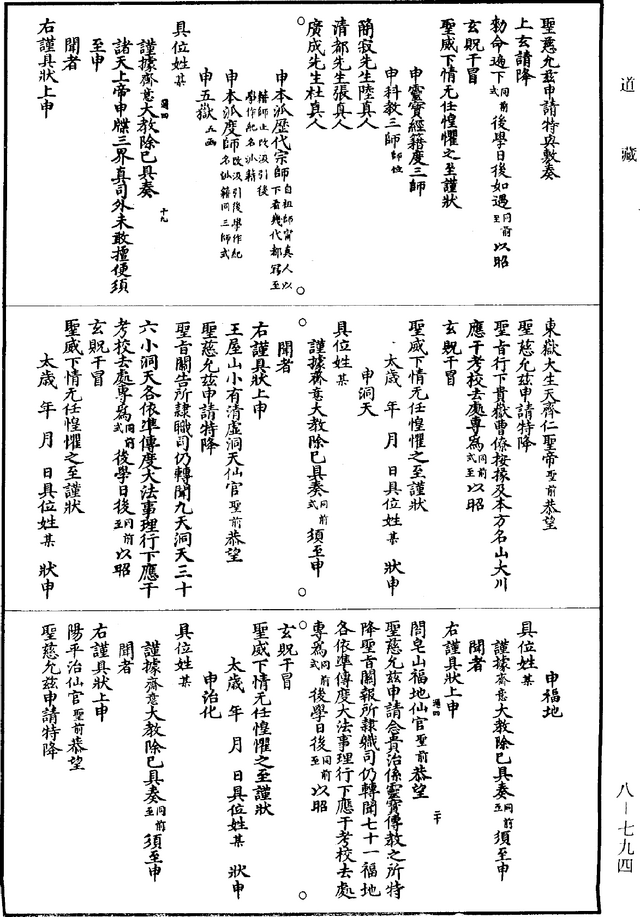 道藏
聖慈允茲申請特與敷奏
上玄請降
勑命遍下同前式後學日後如遇同前至以昭
玄貺干冒
聖威下情无任惶懼之至謹狀
申靈寶經籍度三師
申科教三師師位
簡寂先生陸真人
清都先生張真人
廣成先生杜真人
申本派歷代宗師自祖師甯真人以下看幾代都寫至籍師止改汲引後學作紀名仙籍
申本派度師改汲引後學作紀名仙籍同三師式
申五嶽五函
具位姓某
謹據齋意大教除已具奏
諸天上帝申牒三界真司外未敢擅便須
至申
聞者
右謹具狀上申
東嶽大生天齊仁聖帝聖前恭望
聖慈允茲申請特降
聖旨行下貴嶽曹僚按掾及本方名山大川
應干考校去處專為同前式至以昭
玄貺干冒
聖威下情无任惶懼之至謹狀
太歲年月日具位姓某狀申
申洞天
具位姓某
謹據齋意大教除已具奏同前式須至申
聞者
右謹具狀上申
王屋山小有清虛洞天仙官聖前恭望
聖慈允茲申請特降
聖旨關告所隸職司仍轉聞九天洞天三十
六小洞天各依準傳度大法事理行下應干
考校去處專為同前式後學日後同前至以昭
玄貺干冒
聖威下情无任惶懼之至謹狀
太歲年月日具位姓某狀申
申福地
具位姓某
謹據齋意大教除已具奏同前至須至申
聞者
右謹具狀上申
閤皂山福地仙官聖前恭望
聖慈允茲申請念貴治係靈寶傳教之所特
降聖旨關報所隸職司仍轉聞七十一福地
各依準傳度大法事理行下應干考校去處
專為同前式後學日後同前至以昭
玄貺干冒
聖威下情无任惶懼之至謹狀
太歲年月日具位姓某狀申
申治化
具位姓某
謹據齋意大教除已具奏同前至須至申
聞者
右謹具狀上申
陽平治仙官聖前恭望
聖慈允茲申請特降
八—七九四